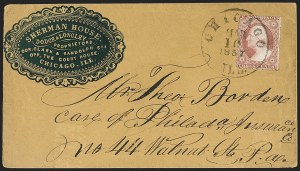 SHERMAN HOUSE
PROPRIETORS
COR. CLARK & RANDOLPH STS
OPP. THE COURT HOUSE
CHICAGO, ILL.
CHICAGO
ILL
Mr. Theo Borden
Care of Philada Insurance
No 44 Walnut St. Pa